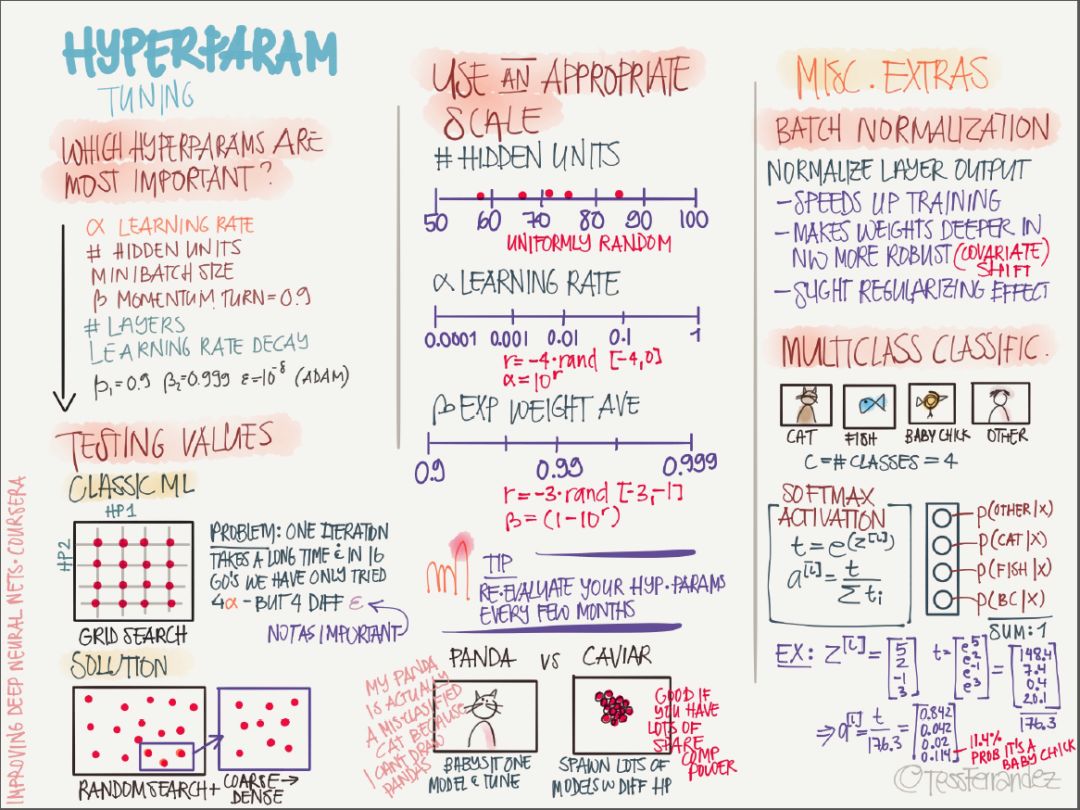 HYPERPARAM
TUNING
WHICH HYPERPARAMS ARE
MOST IMPORTANT?
α LEARNING RATE
# HIDDEN UNITS
MINIBATCH SIZE
β MOMENTUM TURN = 0.9
# LAYERS
LEARNING RATE DECAY
β₁=0.9 β₂=0.999 ε=10⁻⁸ (ADAM)
TESTING VALUES
CLASSIC ML
HP1
HP2
GRID SEARCH
PROBLEM: ONE ITERATION
TAKES A LONG TIME & IN 16
GO'S WE HAVE ONLY TRIED
4α - BUT 4 DIFF ε
NOT AS IMPORTANT
SOLUTION
RANDOM SEARCH + COARSE→
DENSE
IMPROVING DEEP NEURAL NETS · COURSERA
USE AN APPROPRIATE
SCALE
# HIDDEN UNITS
50 60 70 80 90 100
UNIFORMLY RANDOM
α LEARNING RATE
0.0001 0.001 0.01 0.1 1
r=-4·rand [-4,0]
α=10ʳ
β EXP WEIGHT AVE
0.9 0.99 0.999
r=-3·rand [-3,-1]
β=(1-10ʳ)
TIP
RE-EVALUATE YOUR HYP.PARAMS
EVERY FEW MONTHS
PANDA VS CAVIAR
MY PANDA
IS ACTUALLY
A MISCLASSIFIED
CAT BECAUSE
I CAN'T DRAW
PANDAS
BABYSIT ONE
MODEL & TUNE
SPAWN LOTS OF
MODELS W DIFF HP
GOOD IF
YOU HAVE
LOTS OF
SPARE
COMP
POWER
MISC. EXTRAS
BATCH NORMALIZATION
NORMALIZE LAYER OUTPUT
- SPEEDS UP TRAINING
- MAKES WEIGHTS DEEPER IN
NW MORE ROBUST (COVARIATE)
SHIFT
- SLIGHT REGULARIZING EFFECT
MULTICLASS CLASSIFIC.
CAT FISH BABY CHICK OTHER
C = # CLASSES = 4
SOFTMAX
ACTIVATION
t = e^(z^[L])
a^[L] = t / Σ tᵢ
P(OTHER|X)
P(CAT|X)
P(FISH|X)
P(BC|X)
SUM: 1
EX: Z^[L] = [5 2 -1 3] t = [e⁵ e² e⁻¹ e³] = [148.4 7.4 0.4 20.1]
176.3
⇒ a^[L] = t / 176.3 = [0.842 0.042 0.02 0.114]
11.4%
PROB IT'S A
BABY CHICK
©TessFerrandez